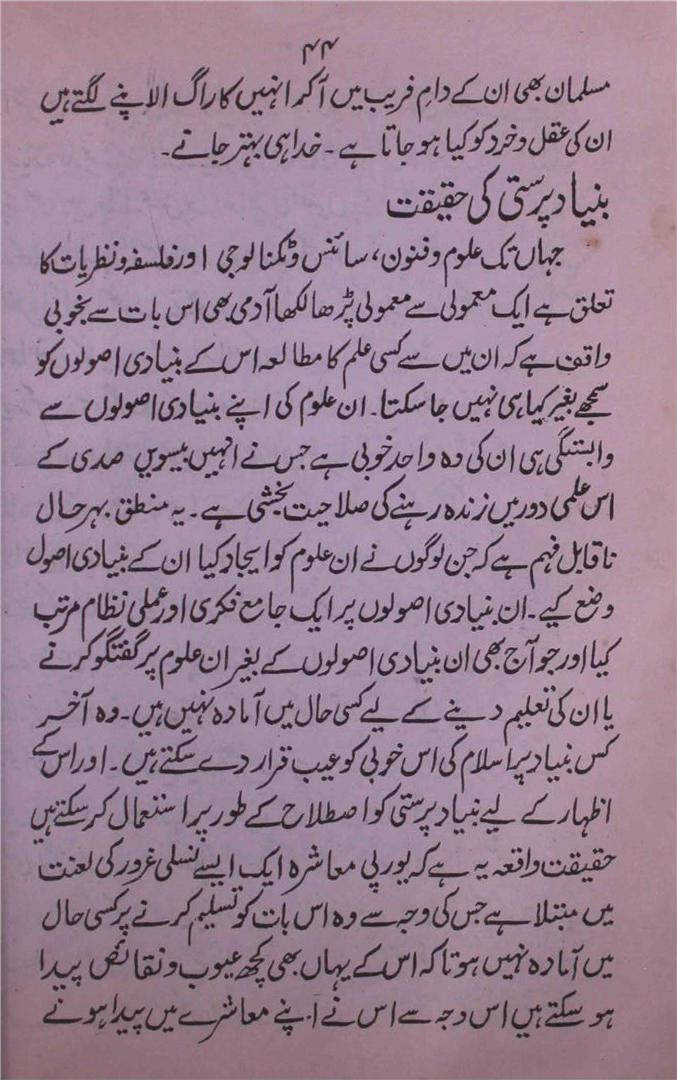 ۴۴
مسلمان بھی ان کے دامِ فریب میں آکر انہیں کا راگ الاپنے لگتے ہیں
ان کی عقل و خرد کو کیا ہو جاتا ہے ۔ خدا ہی بہتر جانے ۔
بنیاد پرستی کی حقیقت
جہاں تک علوم و فنون ، سائنس و ٹکنالوجی اور فلسفہ و نظریات کا
تعلق ہے ایک معمولی سے معمولی پڑھا لکھا آدمی بھی اس بات سے بخوبی
واقف ہے کہ ان میں سے کسی علم کا مطالعہ اس کے بنیادی اصولوں کو
سمجھے بغیر کیا ہی نہیں جا سکتا ۔ ان علوم کی اپنے بنیادی اصولوں سے
وابستگی ہی ان کی وہ واحد خوبی ہے جس نے انہیں بیسویں صدی کے
اس علمی دور میں زندہ رہنے کی صلاحیت بخشی ہے ۔ یہ منطق بہرحال
ناقابل فہم ہے کہ جن لوگوں نے ان علوم کو ایجاد کیا ان کے بنیادی اصول
وضع کیے ۔ ان بنیادی اصولوں پر ایک جامع فکری اور عملی نظام مرتب
کیا اور جو آج بھی ان بنیادی اصولوں کے بغیر ان علوم پر گفتگو کرنے
یا ان کی تعلیم دینے کے لیے کسی حال میں آمادہ نہیں ہیں ۔ وہ آخر
کس بنیاد پر اسلام کی اس خوبی کو عیب قرار دے سکتے ہیں ۔ اور اس کے
اظہار کے لیے بنیاد پرستی کو اصطلاح کے طور پر استعمال کر سکتے ہیں
حقیقت واقعہ یہ ہے کہ یورپی معاشرہ ایک ایسے نسلی غرور کی لعنت
میں مبتلا ہے جس کی وجہ سے وہ اس بات کو تسلیم کرنے پر کسی حال
میں آمادہ نہیں ہوتا کہ اس کے یہاں بھی کچھ عیوب و نقائص پیدا
ہو سکتے ہیں اس وجہ سے اس نے اپنے معاشرے میں پیدا ہونے